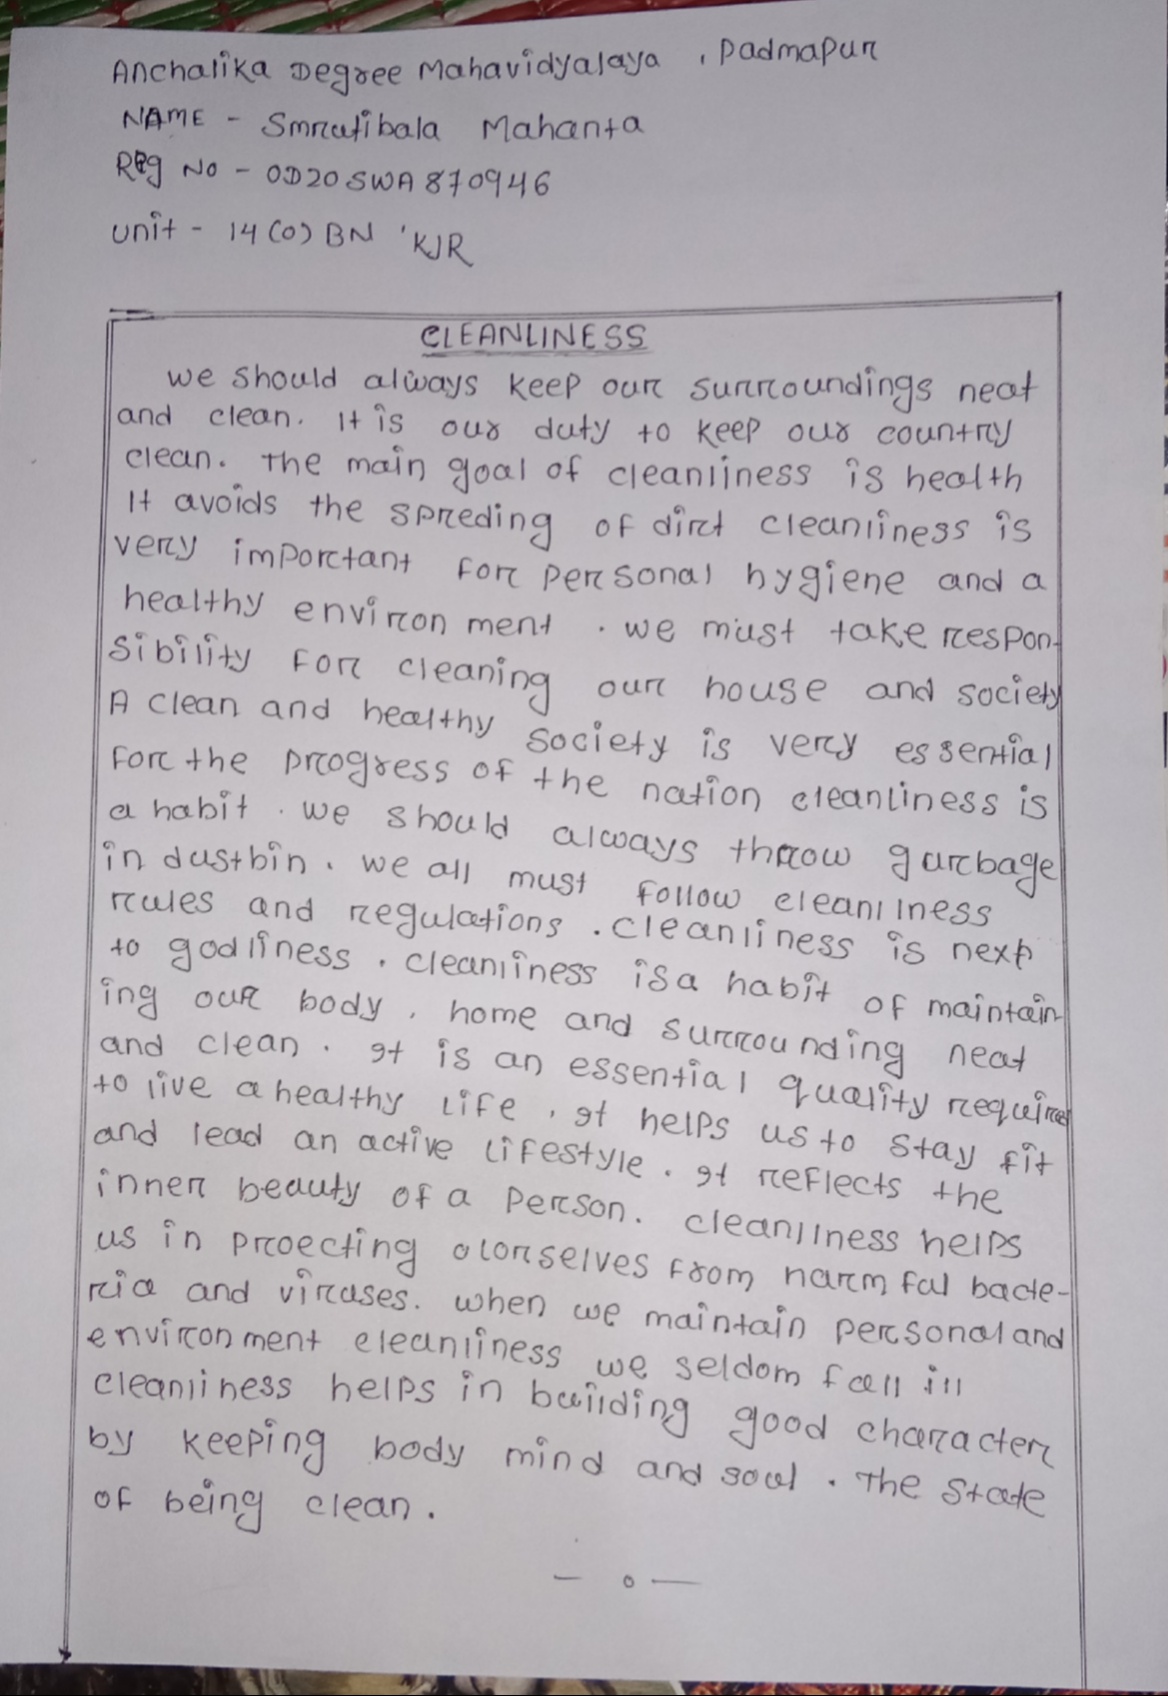 Anchalika Degree Mahavidyalaya , Padmapur
NAME - Smrutibala Mahanta
Reg No - OD20SWA870946
Unit - 14 (O) BN 'KJR
CLEANLINESS
we should always keep our surroundings neat
and clean. It is our duty to keep our country
clean. The main goal of cleanliness is health
It avoids the spreding of dirt cleanliness is
very important for personal hygiene and a
healthy environ ment . we must take respon-
sibility for cleaning our house and society
A clean and healthy society is very essential
for the progress of the nation cleanliness is
a habit . we should always throw garbage
in dustbin . we all must follow cleanliness
rules and regulations . cleanliness is next
to godliness . cleanliness is a habit of maintain
ing our body , home and surrounding neat
and clean . It is an essential quality required
to live a healthy life , It helps us to stay fit
and lead an active lifestyle . It reflects the
inner beauty of a person. cleanliness helps
us in proecting olorselves from harm ful bacte-
ria and viruses. when we maintain personal and
environ ment cleanliness we seldom fall ill
cleanliness helps in building good character
by keeping body mind and soul . The state
of being clean .
— 0 —